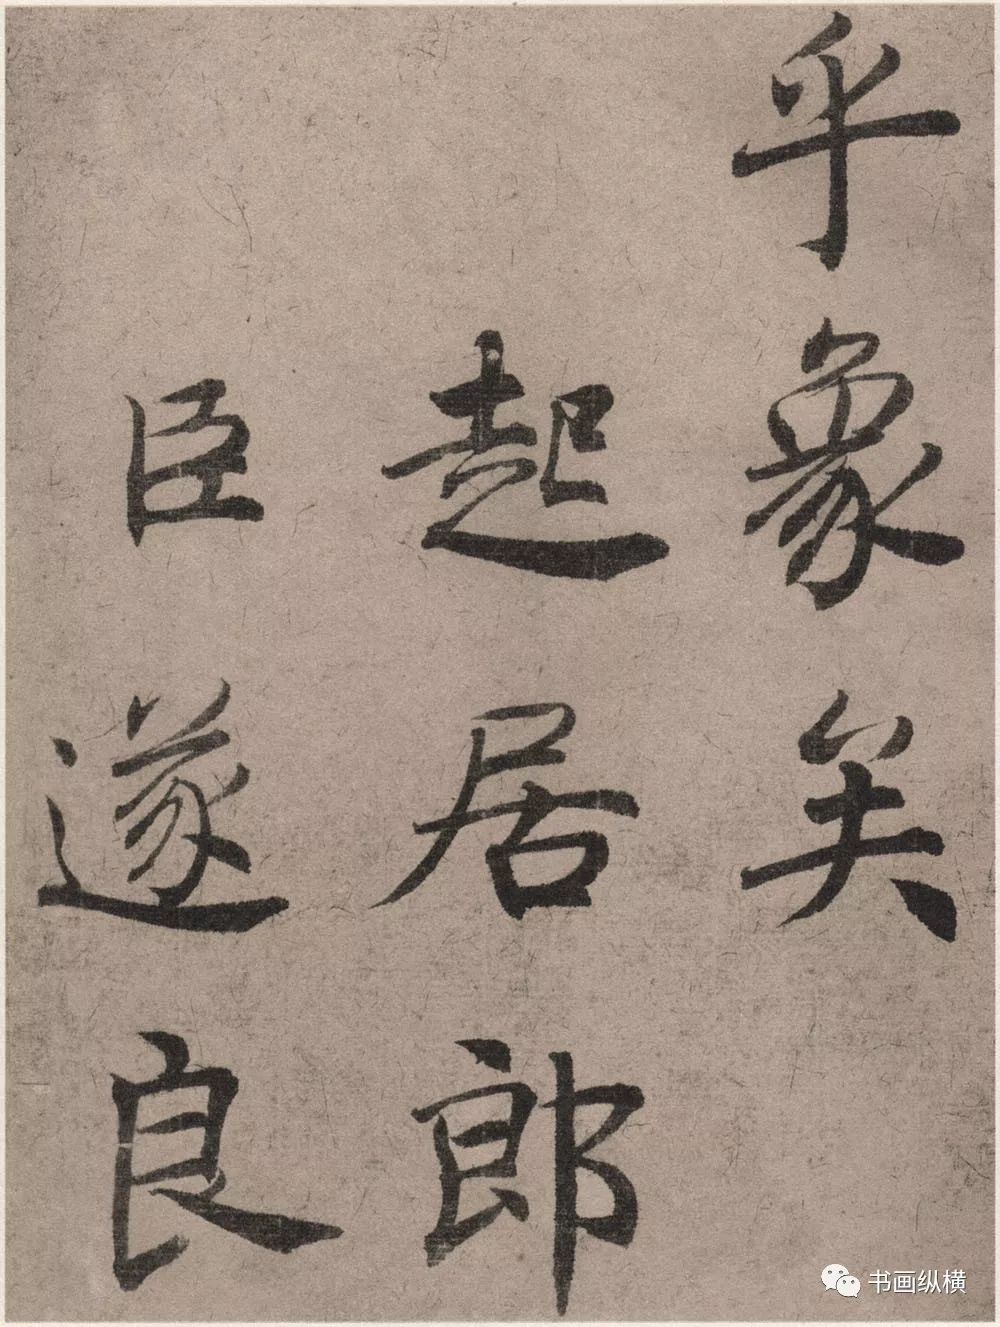 乎象矣
起居郎
臣遂良
书画纵横